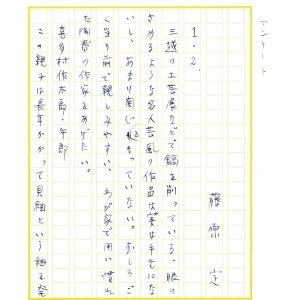 アンケート
藤原 定
1.2.
三越の工芸展などで鎬を削っている、眼の
さめるような名人芸風の作品は実は手元にな
いし、あまり肌に会っていない。むしろご
く当り前で親しみやすい、わが家で用い慣れ
た陶磬の作家をあげたい。
喜多村作太郎・年郎
この親子は長年かかって貝釉という釉を発